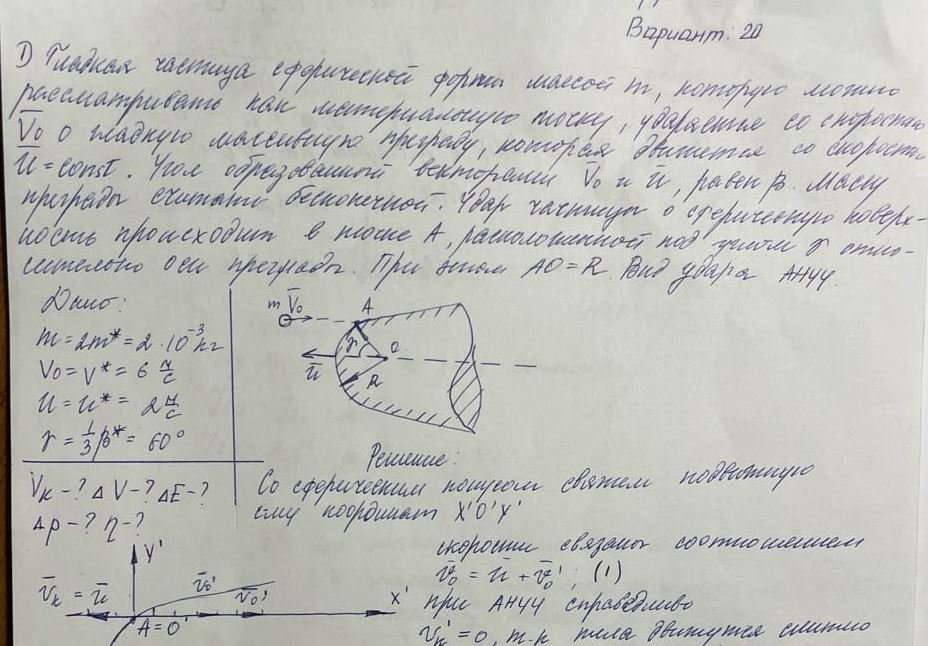 Вариант: 20
1) Гладкая частица сферической формы массой m, которую можно
рассматривать как материальную точку, ударяется со скоростью
V̄₀ о гладкую массивную преграду, которая движется со скорость
ū = const. Угол образованный векторами V̄₀ и ū, равен β. Массу
преграды считать бесконечной. Удар частицы о сферическую поверх-
ность происходит в точке A, расположенной под углом γ отно-
сительно оси преграды. При этом AO = R. Вид удара АНЧУ.
Дано:
m = 2m* = 2 · 10⁻³ кг
V₀ = V* = 6 м/с
U = u* = 2 м/с
γ = 1/3 β* = 60°
Vк - ? Δ V - ? ΔE - ?
Δp - ? η - ?
m V̄₀
A
γ
O
ū
R
Решение:
Со сферическим конусом свяжем подвижную
сму координат X'O'Y'
скорости связаны соотношением
v̄₀ = ū + v̄₀' ; (1)
при АНЧУ справедливо
v̄к' = 0, т.к тела движутся слитно
Y'
v̄к = ū
v̄₀'
v̄₀'
X'
A = O'